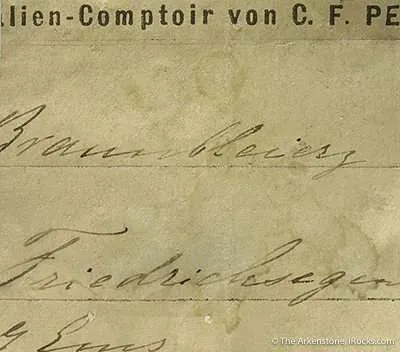 alien-Comptoir von C. F. PE
Braunbleierz
Friedrichsegen
Ems
© The Arkenstone, iRocks.com